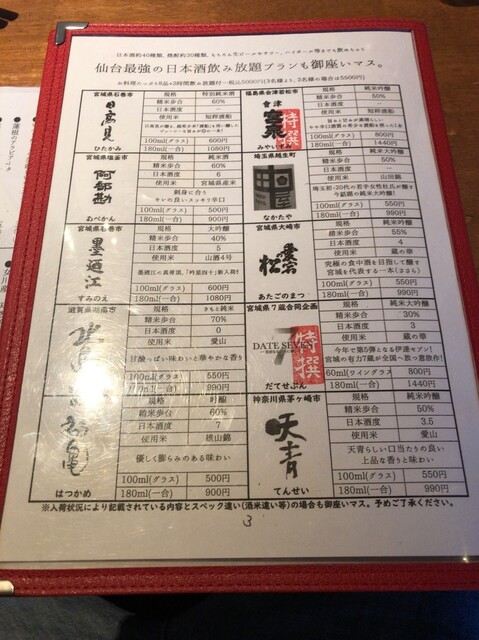 日本酒約40種類、焼酎約30種類、もちろん生ビールやサワー、ハイボール等までも飲めちゃう
仙台最強の日本酒飲み放題プランも御座いマス。
宮城県石巻市
日高見
ひたかみ
規格 特別純米酒
精米歩合 60%
日本酒度 –
使用米 短稈渡船
100ml(グラス) 600円
180ml(一合) 1080円
宮城県塩釜市
阿部勘
あべかん
規格 純米酒
精米歩合 60%
日本酒度 6
使用米 宮城県産米
刺身に合う
キレの良いスッキリ辛口
100ml(グラス) 500円
180ml(一合) 900円
宮城県石巻市
墨廼江
すみのえ
規格 大吟醸
精米歩合 40%
日本酒度 5
使用米 山酒4号
100ml(グラス) 600円
180ml(一合) 1080円
滋賀県湖南市
規格 きもと純米
精米歩合 70%
日本酒度 0
使用米 愛山
甘酸っぱい味わいと華やかな香り
100ml(グラス) 550円
180ml(一合) 990円
はつかめ
規格 吟醸
精米歩合 60%
日本酒度 7
使用米 雄山錦
優しく膨らみのある味わい
100ml(グラス) 500円
180ml(一合) 900円
福島県会津若松市
會津
宮泉
特撰
みやいずみ
規格 純米吟醸
精米歩合 50%
日本酒度 –
使用米 短稈渡船
100ml(グラス) 800円
180ml(一合) 1440円
埼玉県越生町
なかたや
規格 純米大吟醸
精米歩合 50%
日本酒度 –
使用米 山田錦
埼玉初・20代の若手女性杜氏が醸す
今話題の純米大吟醸!
100ml(グラス) 550円
180ml(一合) 990円
宮城県大崎市
愛宕の松
あたごのまつ
規格 純米吟醸
精米歩合 55%
日本酒度 4
使用米 蔵の華
究極の食中酒を目指して醸す
宮城を代表する一本!(ささら)
100ml(グラス) 550円
180ml(一合) 990円
宮城県7蔵合同企画
7
DATE SEVEN
特撰
だてせぶん
規格 純米大吟醸
精米歩合 30%
日本酒度 3
使用米 蔵の華
今年で第5弾となる伊達セブン!
宮城の有力7蔵が全国へ放つ意欲作!
60ml(ワイングラス) 800円
180ml(一合) 1440円
神奈川県茅ヶ崎市
天青
てんせい
規格 純米吟醸
精米歩合 50%
日本酒度 3.5
使用米 愛山
天青らしい口当たりの良い
上品な香りと味わい
100ml(グラス) 550円
180ml(一合) 990円
※入荷状況により記載されている内容とスペック違い(酒米違い等)の場合も御座いマス。予めご了承ください。
3